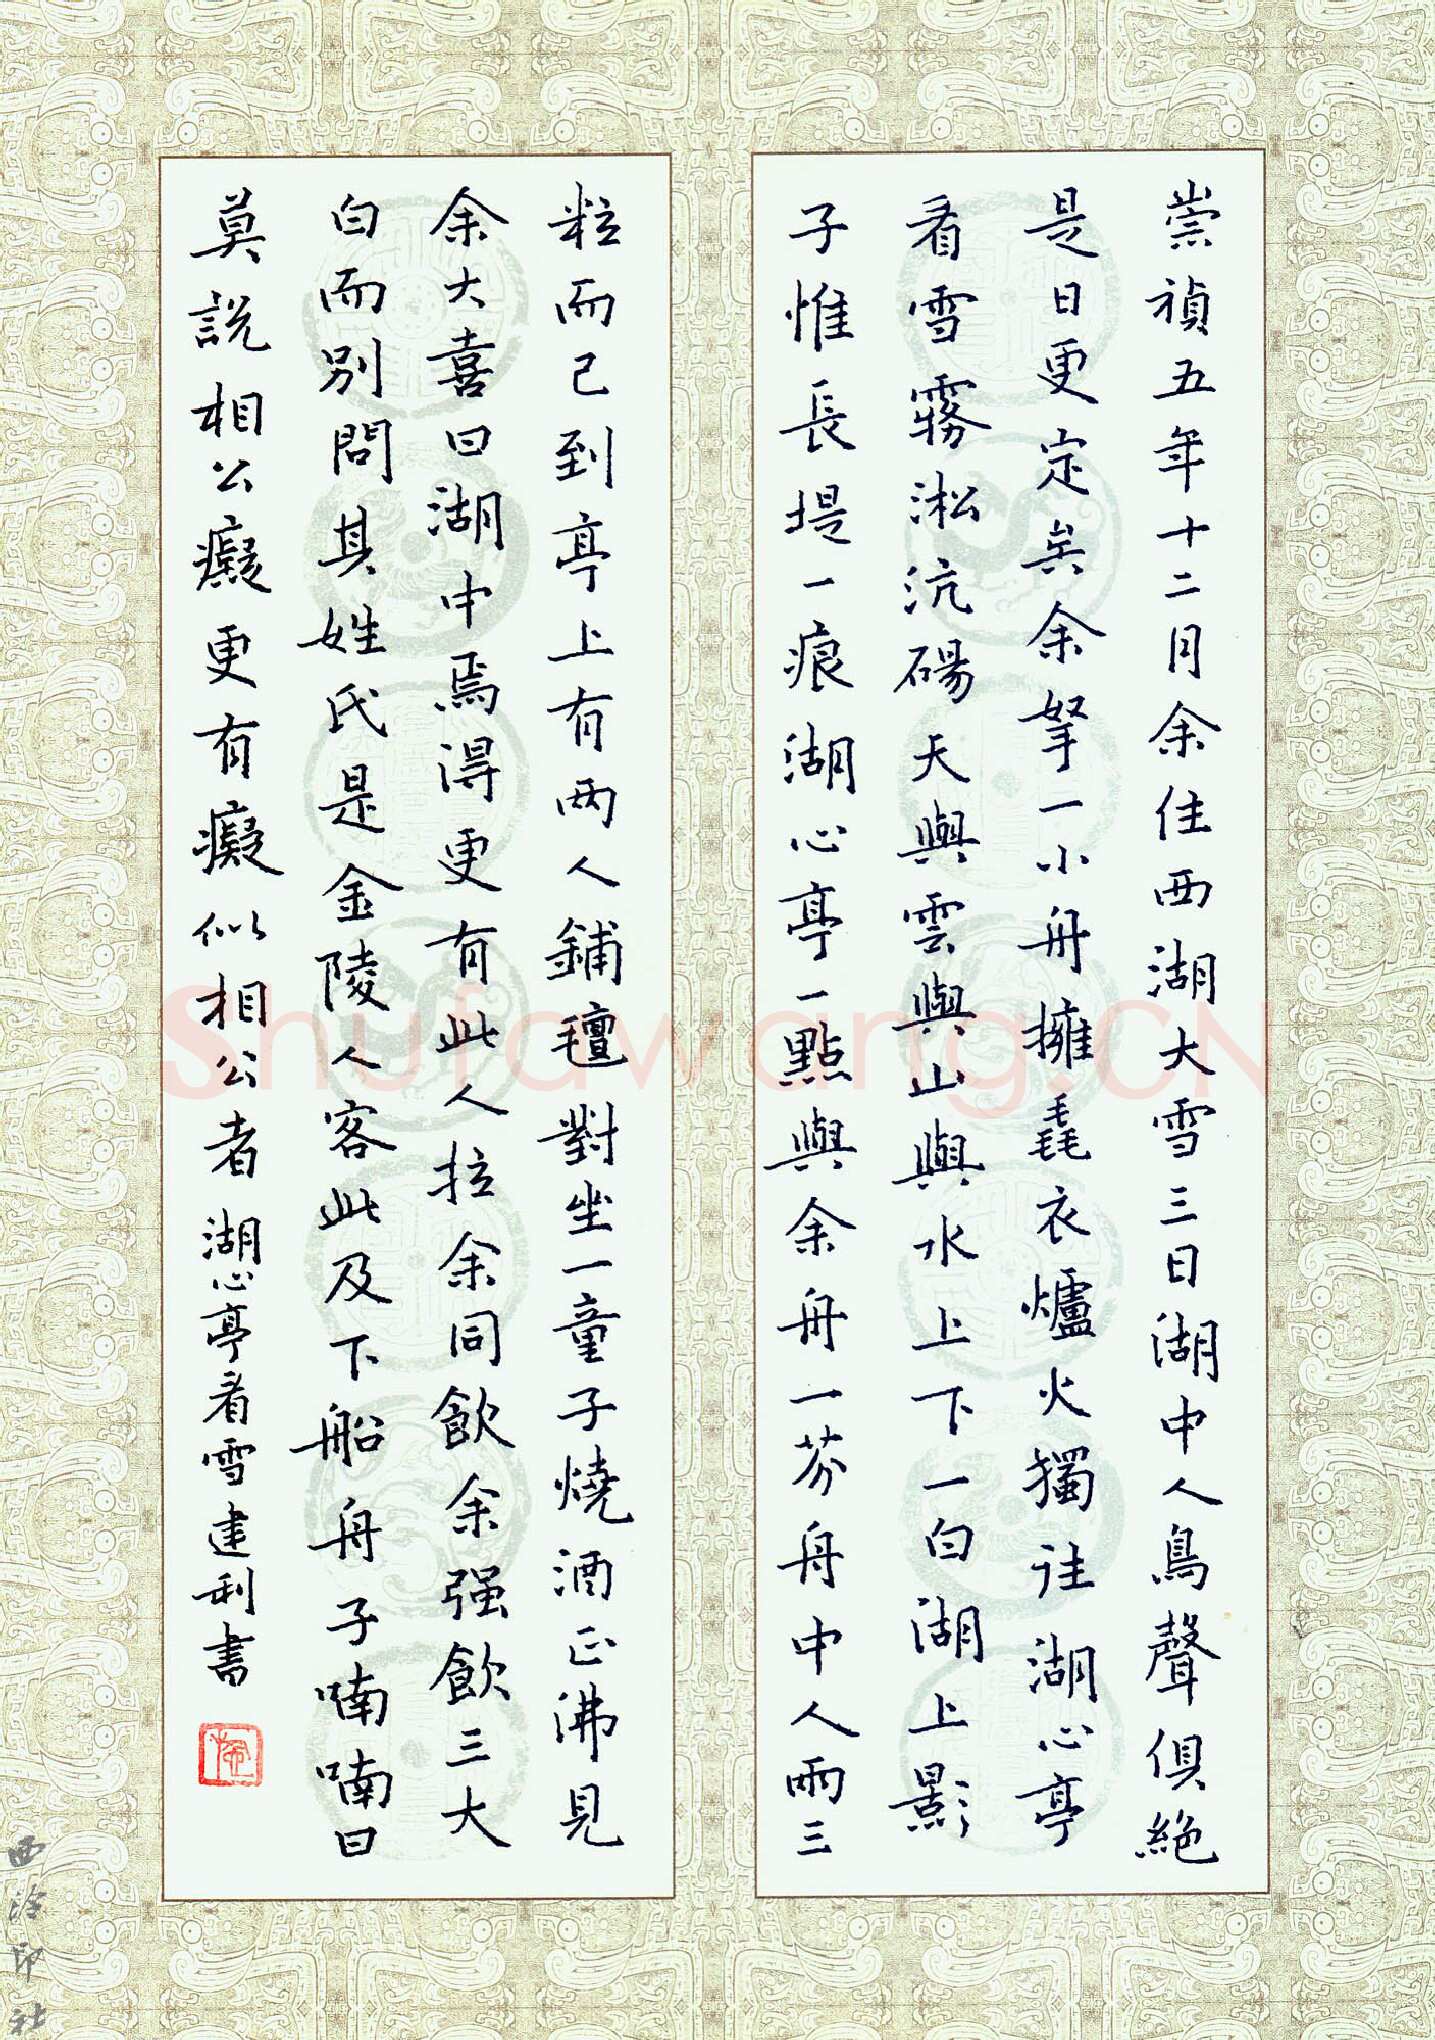 崇禎五年十二月余住西湖大雪三日湖中人鳥聲俱絕
是日更定矣余拏一小舟擁毳衣爐火獨往湖心亭
看雪霧淞沆碭天與雲與山與水上下一白湖上影
子惟長堤一痕湖心亭一點與余舟一芥舟中人兩三
粒而已到亭上有兩人鋪氊對坐一童子燒酒正沸見
余大喜曰湖中焉得更有此人拉余同飲余强飲三大
白而別問其姓氏是金陵人客此及下船舟子喃喃曰
莫說相公癡更有癡似相公者 湖心亭看雪建利書
西泠印社
Shufawang.CN